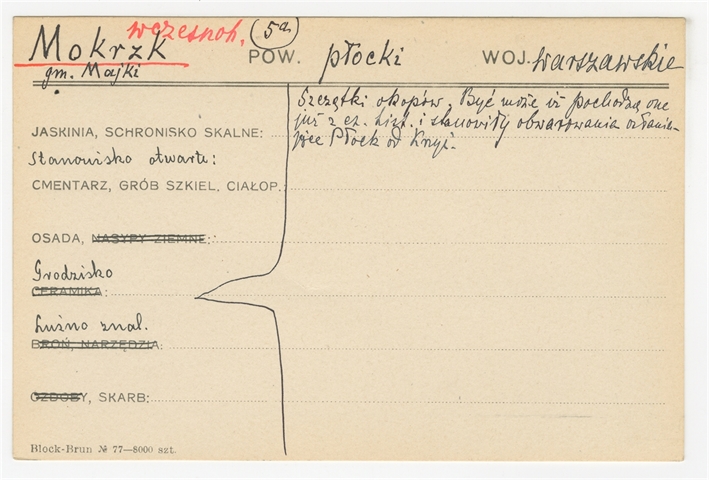 wczesnoh. 5a
Mokrzk POW. płocki WOJ. warszawskie
gm. Majki
Szczątki okopów. Być może iż pochodzą one
JASKINIA, SCHRONISKO SKALNE: już z cz. hist. i stanowiły obwarowania osłania-
jące Płock od
Stanowisko otwarte:
CMENTARZ, GRÓB SZKIEL. CIAŁOP.
OSADA, NASYPY ZIEMNE:
Grodzisko
CERAMIKA:
Luźno znal.
BROŃ, NARZĘDZIA:
OZDOBY, SKARB:
Block-Brun № 77—8000 szt.